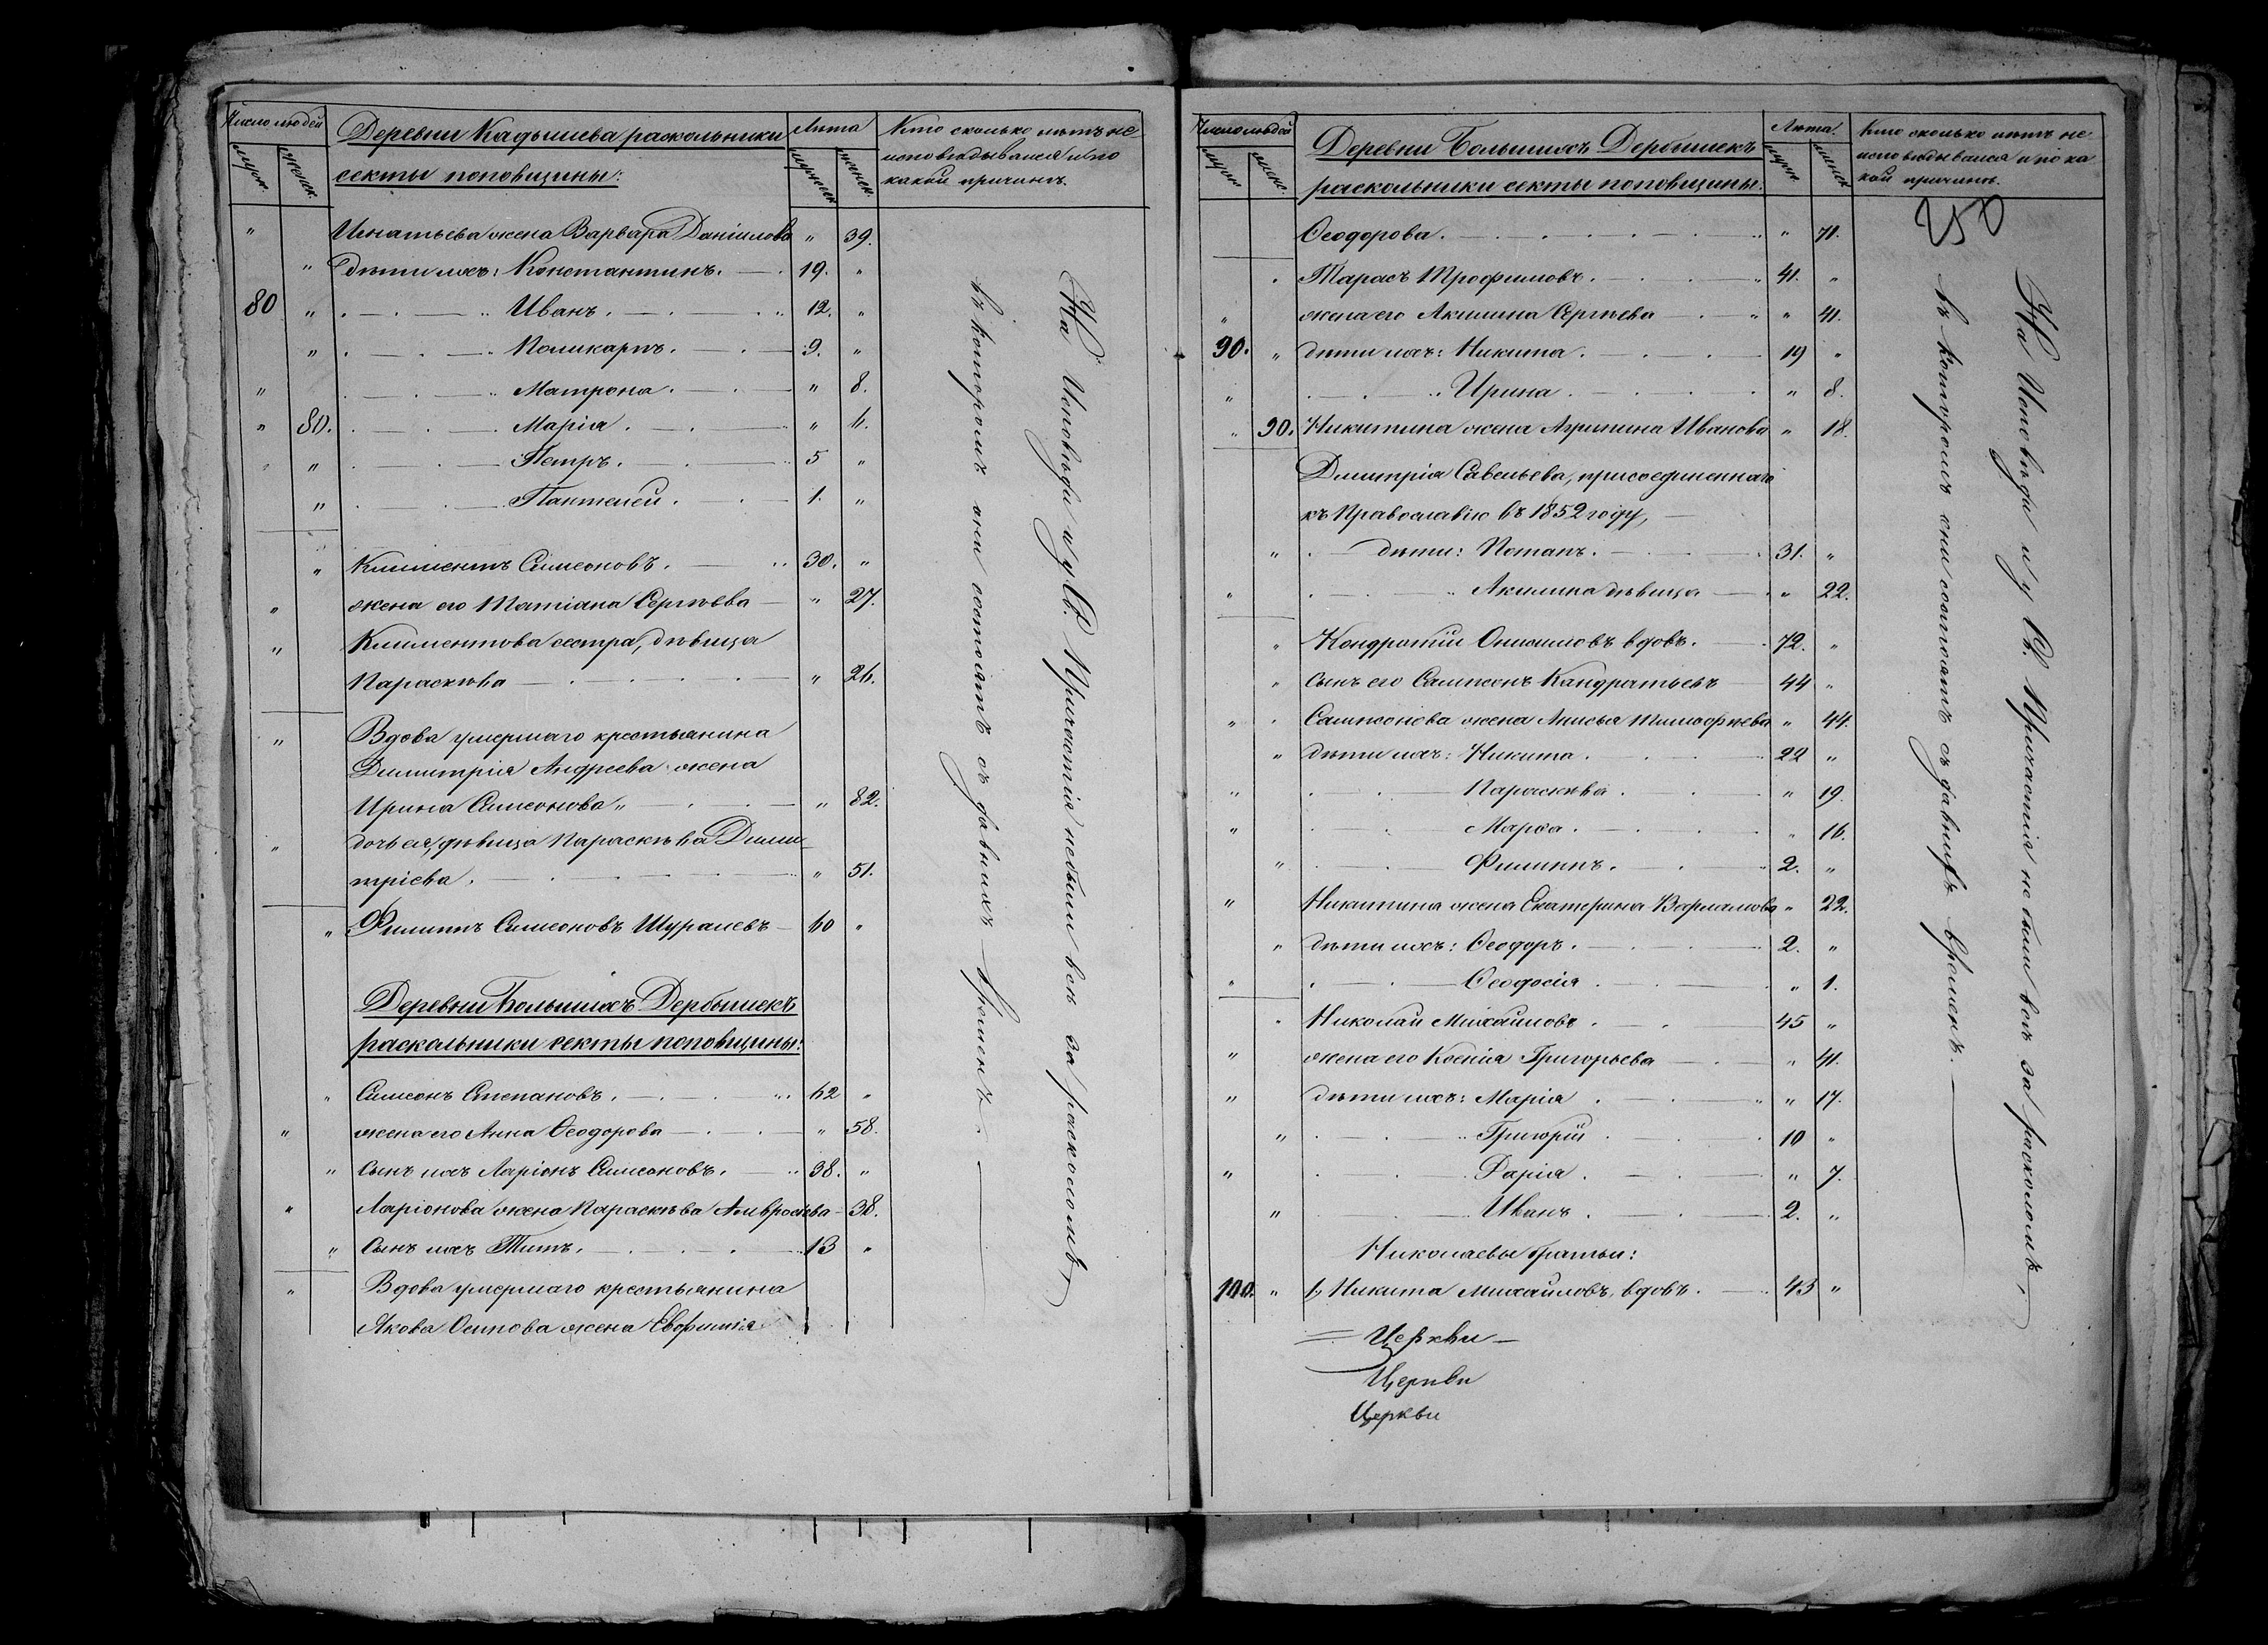 Число людей
Деревни Кадышева раскольники
Лѣта
Кто сколько лѣтъ не
секты поповщины:
исповѣдывался и по
какой причинѣ.
мужск.
женск.
мужеск.
женск.
" Игнатьева жена Варвара Даніилова " 39.
" дѣти ихъ: Константинъ. 19. "
80 " Иванъ. 12. "
" Поликарпъ. 9. "
" Матрона. " 8.
" 80. Марія. " 6.
" Петръ. 5 "
" Пантелей. 1. "
" Климентъ Симеоновъ. 30. "
" жена его Татіана Сергѣева " 27.
" Климентова сестра, дѣвица
Параскѣва " 26.
" Вдова умершаго крестьянина
Димитрія Андреева жена
Ирина Симеонова " 82.
" дочь ея, дѣвица Параскѣва Дими
тріева. " 51.
" Филиппъ Симеоновъ Шуралевъ 60 "
Деревни Большихъ Дербышекъ
раскольники секты поповщины:
" Симеонъ Степановъ. 62 "
" жена его Анна Ѳеодорова " 58.
" Сынъ ихъ Ларіонъ Симеоновъ. 38. "
" Ларіонова жена Параскѣва Амвросіева 38.
" Сынъ ихъ Титъ. 13 "
" Вдова умершаго крестьянина
Якова Осипова жена Евфимія
На Исповѣди и у Св. Причастія небыли всѣ за расколомъ,
въ которомъ они состоятъ съ давнихъ временъ.
Число людей
Деревни Большихъ Дербышекъ
Лѣта.
Кто сколько лѣтъ не
раскольники секты поповщины:
исповѣдывался и по ка
кой причинѣ.
мужск.
женск.
мужск.
женск.
250
Ѳеодорова. " 71.
" Тарасъ Трофимовъ. 41. "
" жена его Акилина Сергѣева " 41.
90. " дѣти ихъ: Никита. 19 "
" Ирина. " 8.
" 90. Никитина жена Агрипина Иванова " 18.
Димитрія Савельева, присоединеннаго
къ Православію въ 1852 году,
" дѣти: Потапъ. 31. "
" Акилина дѣвица " 22.
" Кондратій Онисимовъ вдовъ. 72. "
" Сынъ его Сампсонъ Кандратьевъ 44 "
" Сампсонова жена Анисья Тимофѣева " 44.
" дѣти ихъ: Никита. 22 "
" Параскѣва. " 19.
" Марѳа. " 16.
" Филиппъ. 2. "
" Никитина жена Екатерина Варламова " 22.
" дѣти ихъ: Ѳеодоръ. 2. "
" Ѳеодосія. " 1.
" Николай Михайловъ. 45 "
" жена его Ксенія Григорьева " 41.
" дѣти ихъ: Марія. " 17.
" Григорій. 10 "
" Дарія. " 7.
" Иванъ. 2. "
Николаевы братьи:
100. " 1, Никита Михайловъ, вдовъ. 43 "
На Исповѣди и у Св. Причастія не были всѣ за расколомъ,
въ которомъ они состоятъ съ давнихъ временъ.
Церкви
Церкви
Церкви